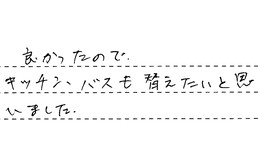 良かったので、
キッチン、バスも替えたいと思
いました.